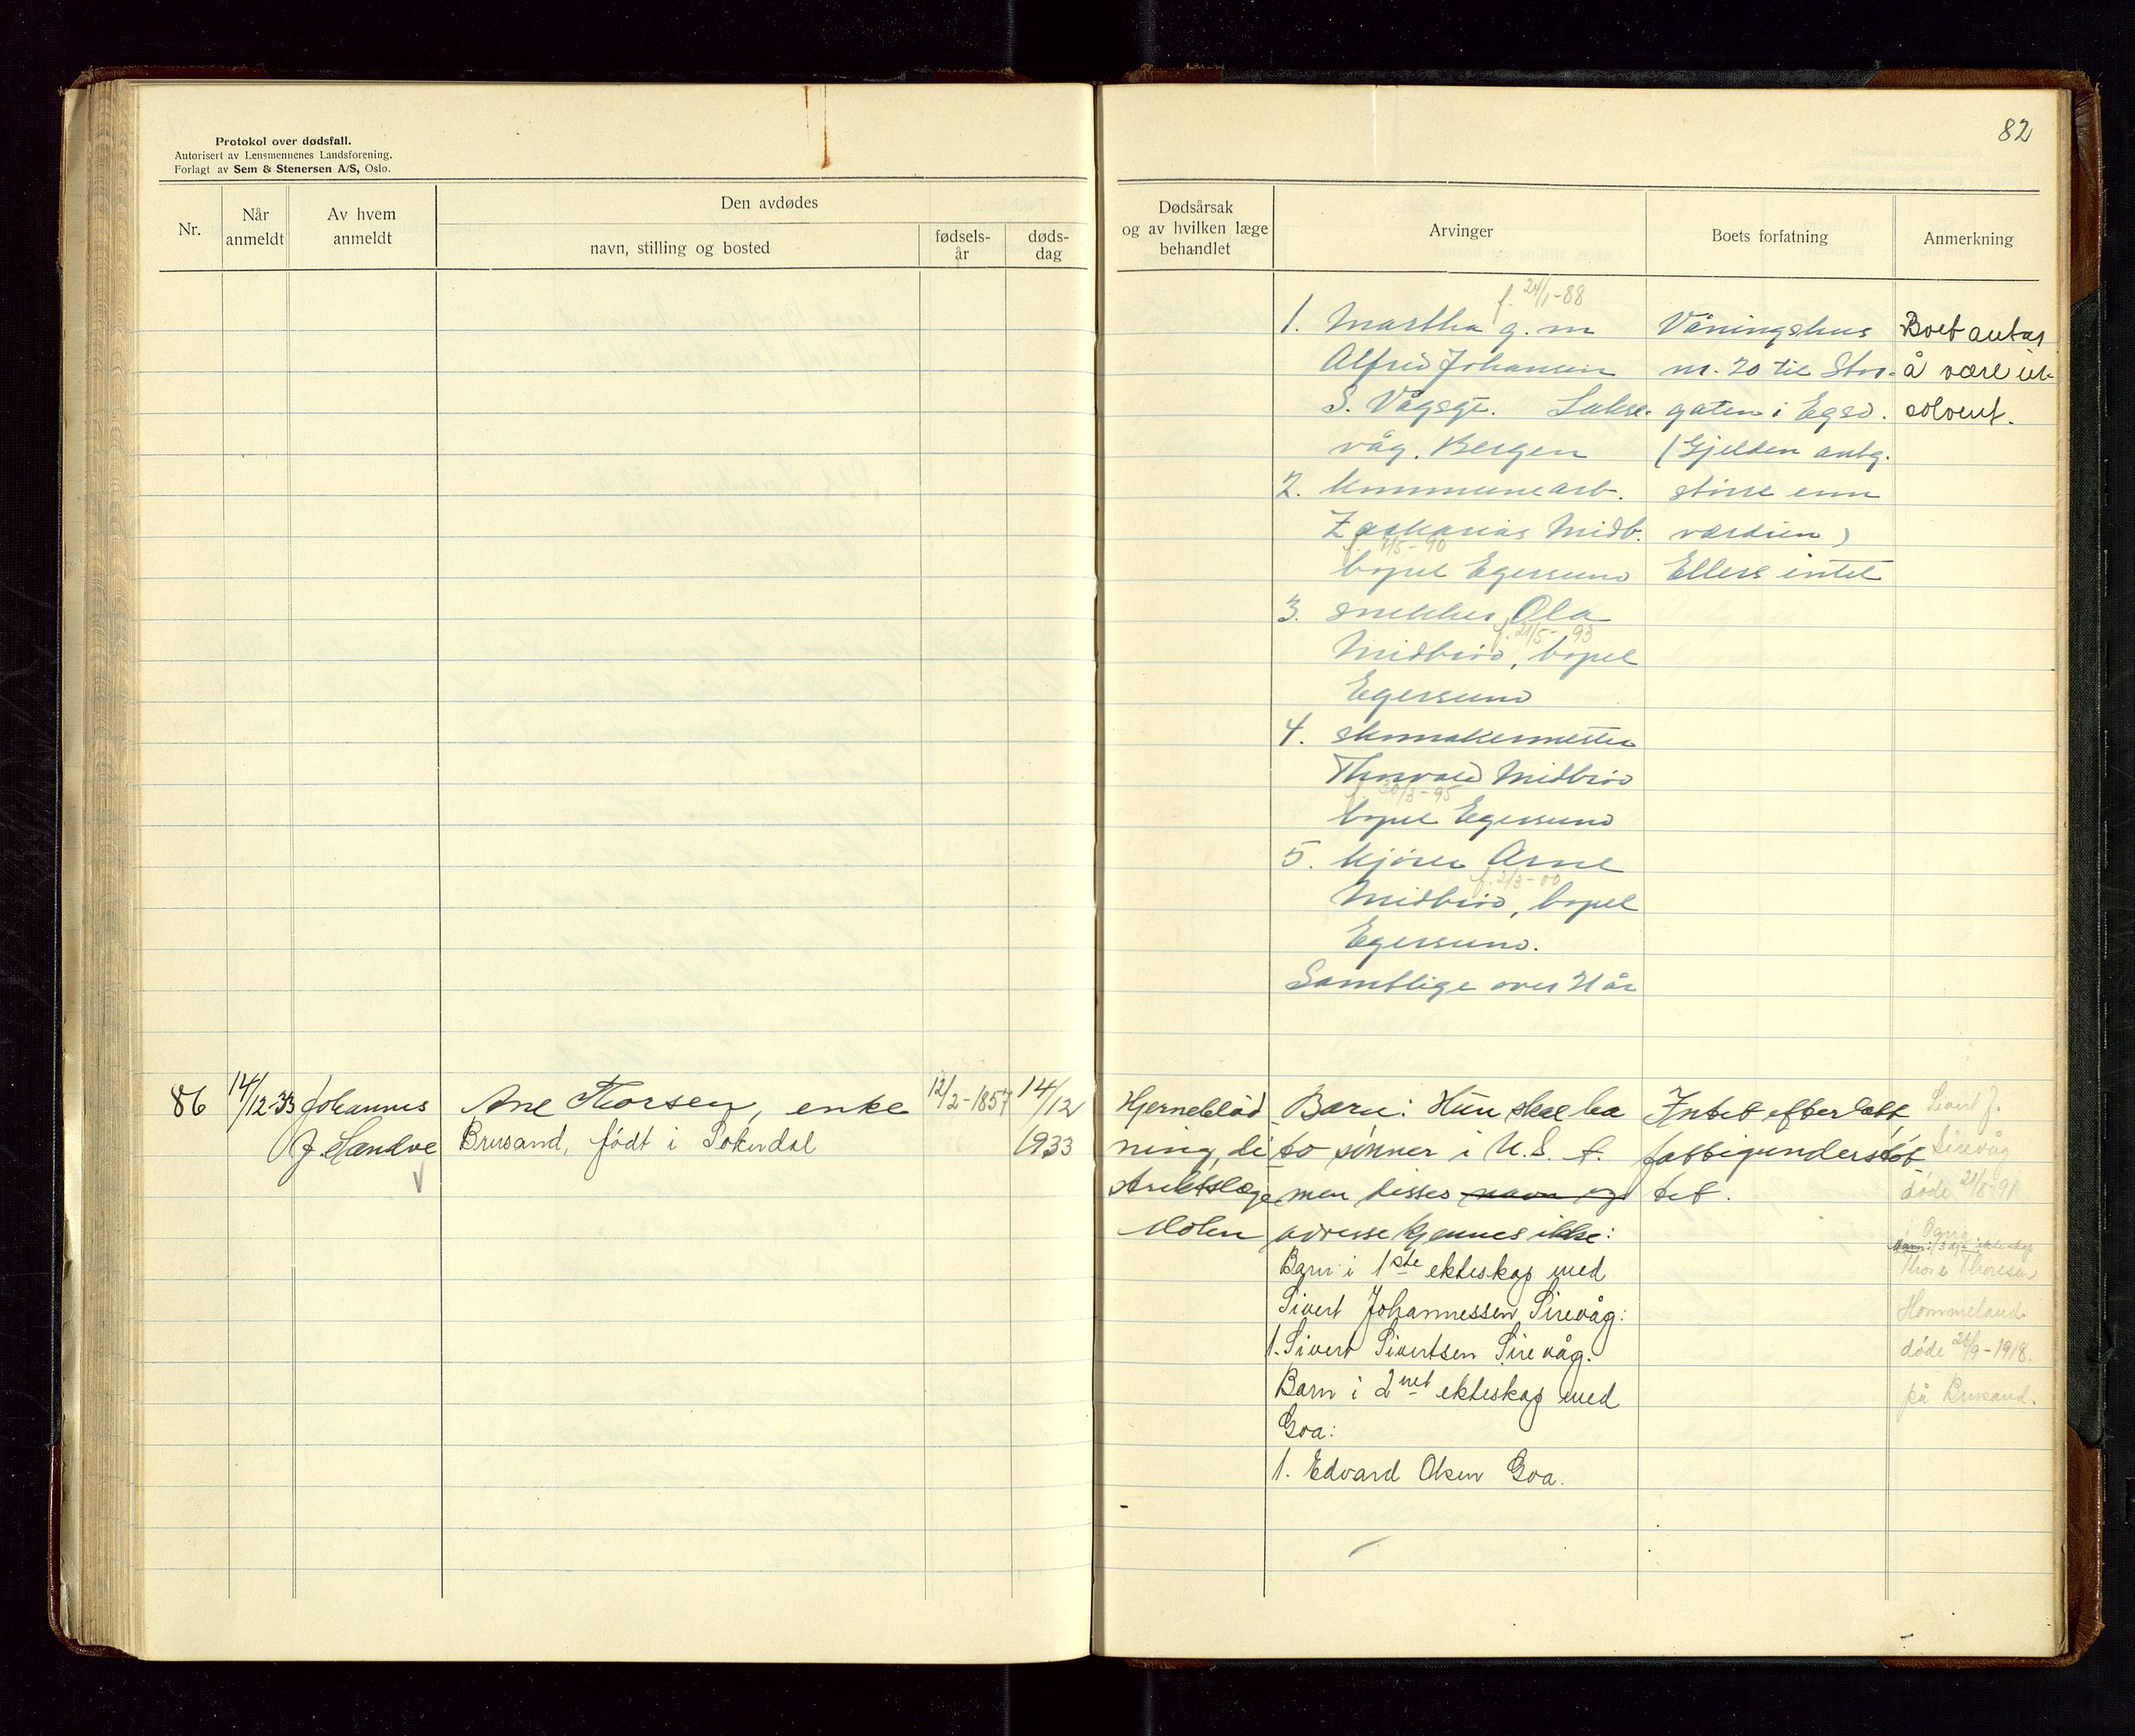 Protokol over dødsfall.
Autorisert av Lensmennenes Landsforening.
Forlagt av Sem & Stenersen A/S, Oslo.
82
Nr.
Når
anmeldt
Av hvem
anmeldt
Den avdødes
navn, stilling og bosted
fødsels-
år
døds-
dag
Dødsårsak
og av hvilken læge
behandlet
Arvinger
Boets forfatning
Anmerkning
f. 24/1-88
1. Martha g. m
Alfred Johansen
S. Vågsgt. Lakse-
våg. Bergen
2. kommunearb.
Zacharias Midb.
f. 7/5-90
bopel Egersund
3. snekker Ola
f. 21/5-93
Midbrød, bopel
Egersund
4. skomakermester
Thorvald Midbrød
f. 30/3-95
bopel Egersund
5. kjører Arne
f. 2/3-00
Midbrød, bopel
Egersund.
Samtlige over 21 år
Våningshus
nr. 20 til Stor-
gaten i Egsd.
(Gjelden antg.
større enn
verdien)
Ellers intet
Boet antas
å være in-
solvent.
86
14/12-33
Johannes
J Sandve
Ane Thorsen, enke
Brusand, født i Sokndal
12/2-1857
14/12
1933
Hjerneblød
ning, di
striktslæge
Molen
Barn: Hun skal ha
to sønner i U.S.A.
men disses navn og
adresse kjennes ikke:
Barn i 1ste ekteskap med
Sivert Johannessen Sirevåg:
1. Sivert Sivertsen Sirevåg.
Barn i 2net ekteskap med
Goa:
1. Edvard Olsen Goa.
Intet efterlatt,
fattigunderstøt
tet.
Sivert J.
Sirevåg
døde 21/8-91
i Ogna
Mann i 3dje ekteskap
Thore Thorsen
Hommeland
døde 26/9-1918.
på Brusand.